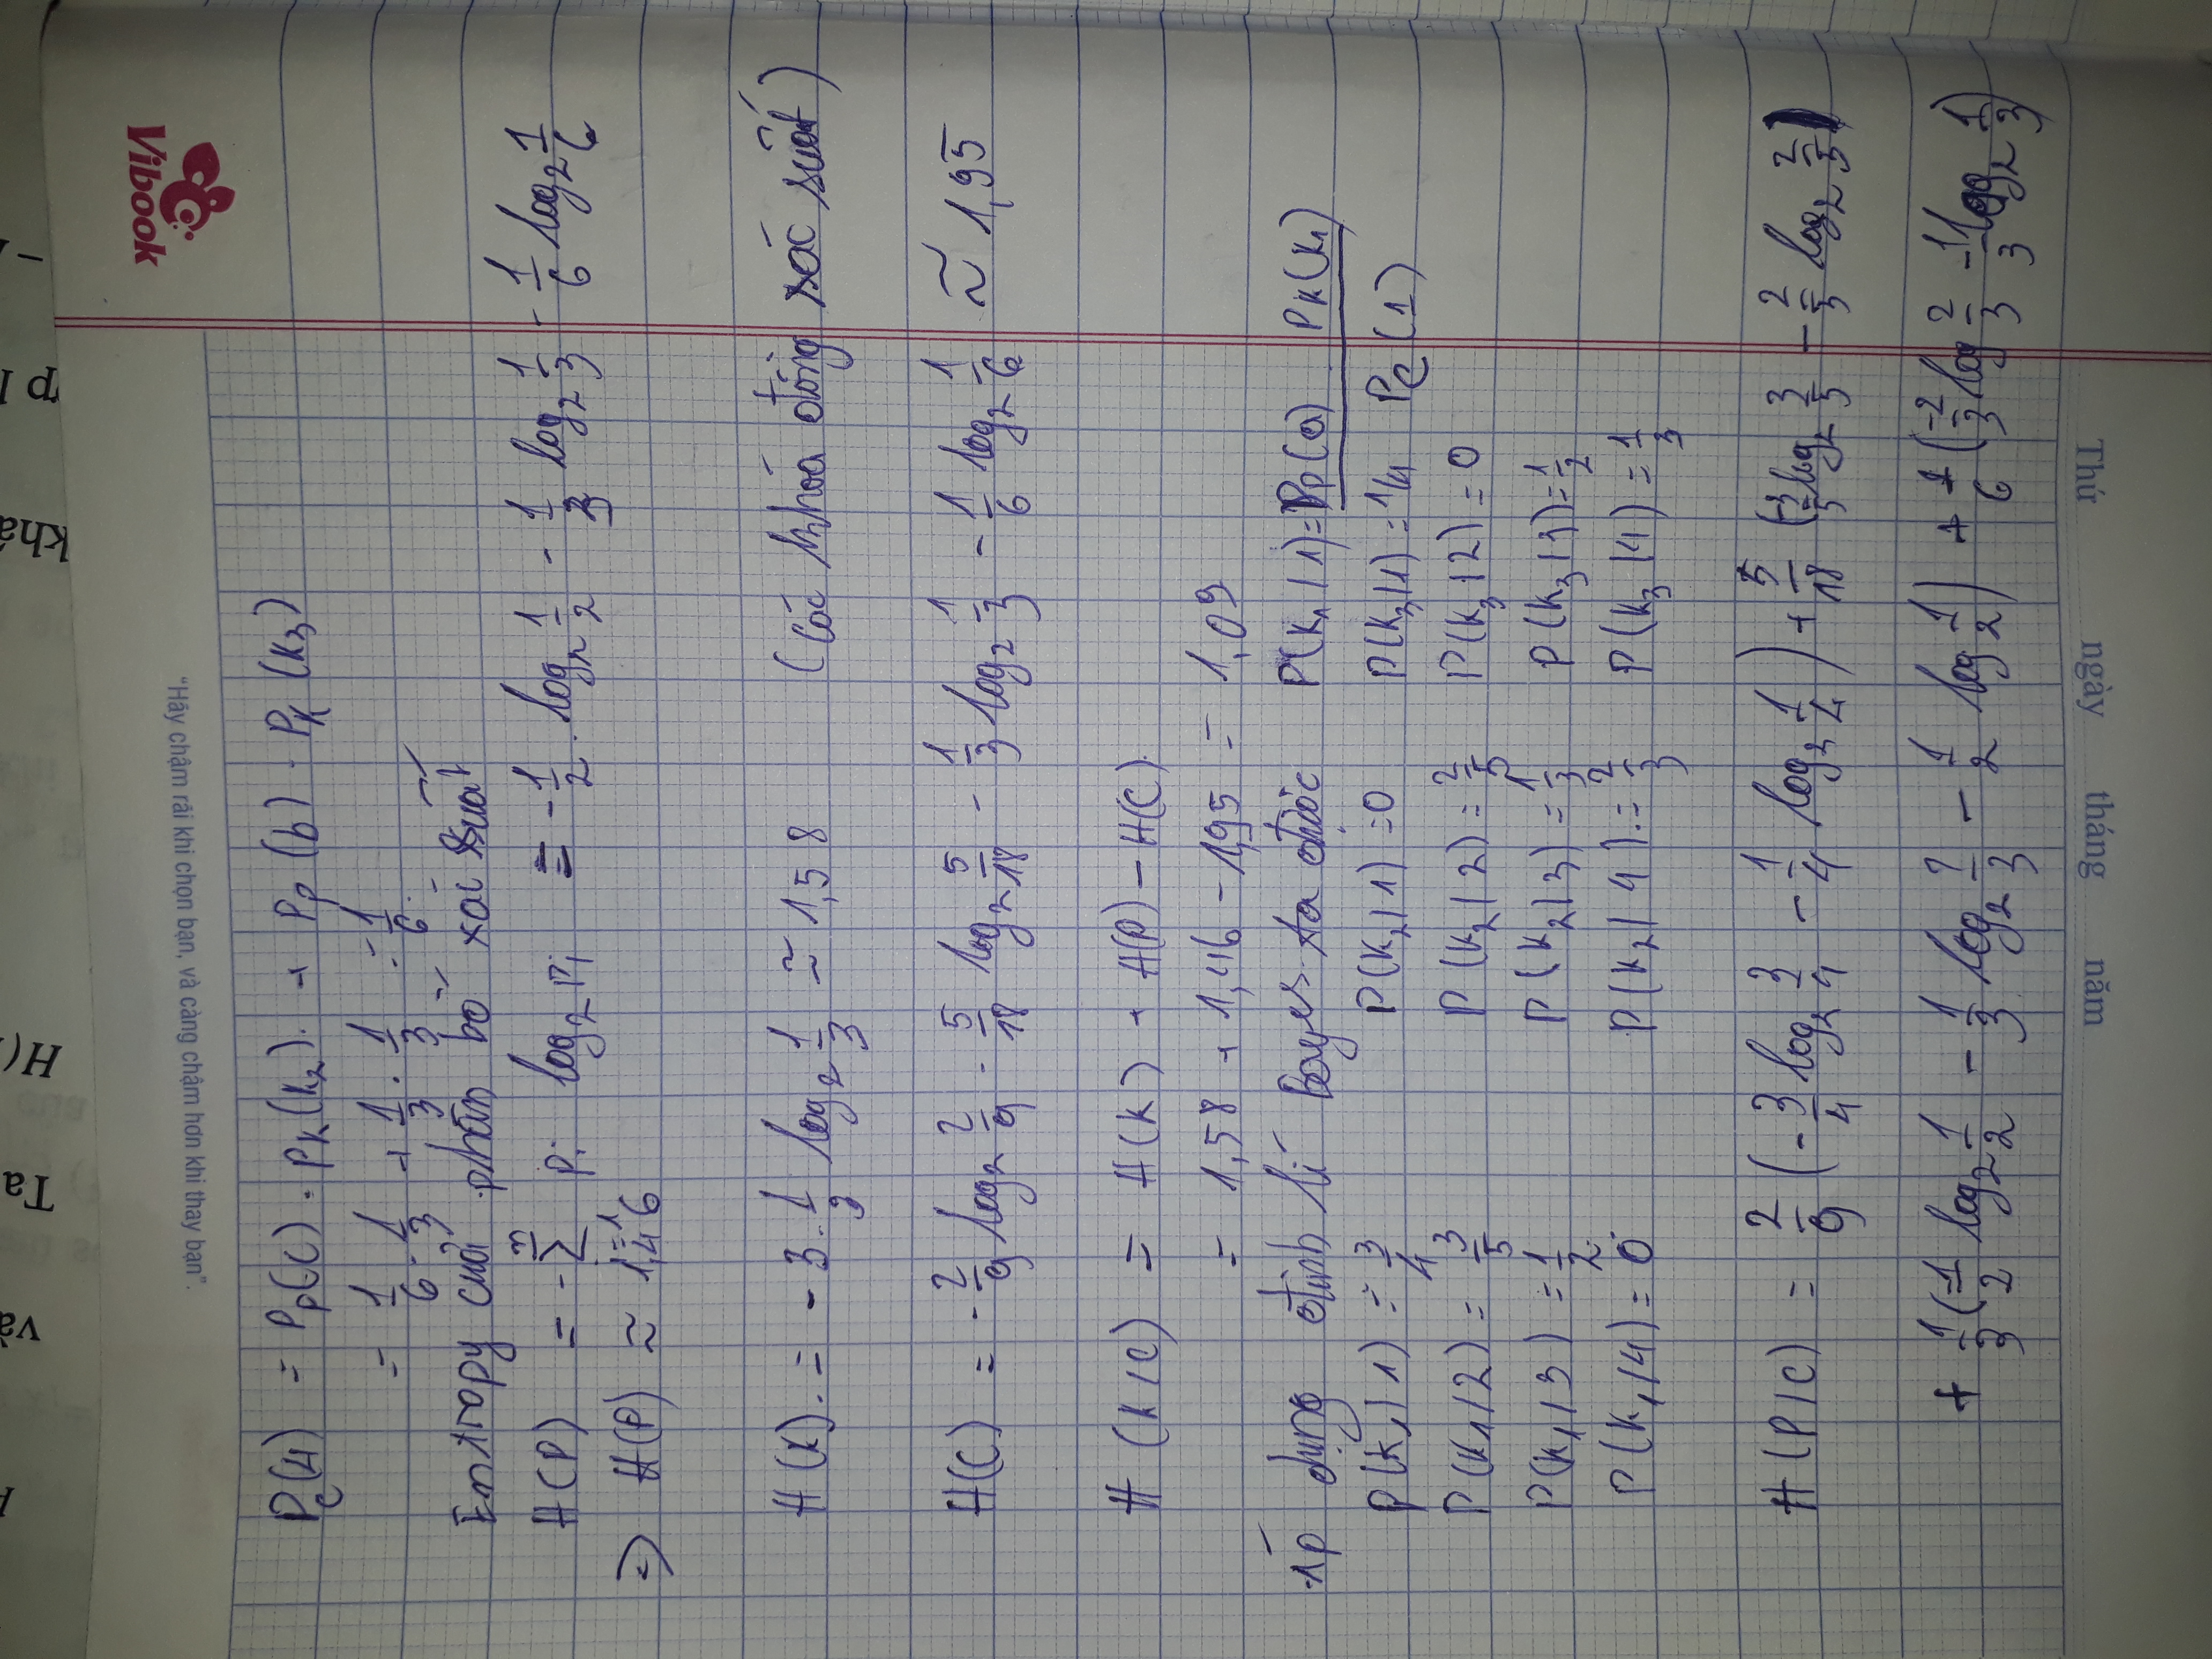 và
Ta
H(
khá
ợp l
Vibook
"Hãy chậm rãi khi chọn bạn, và càng chậm hơn khi thay bạn".
P_C(4) = P_P(c) . P_K(k₂) + P_P(b) . P_K(k₃)
= 1/6 . 1/3 + 1/3 . 1/3 = 1/6
Entropy cuả phân bố xác suất
H(P) = -∑ⁿᵢ₌₁ pᵢ log₂ pᵢ = -1/2 . log₂ 1/2 - 1/3 log₂ 1/3 - 1/6 log₂ 1/6
=> H(P) ≈ 1,46
H(K) = -3 . 1/3 log₂ 1/3 ≈ 1,58 (các khoá đồng xác suất)
H(C) = -2/9 log₂ 2/9 - 5/18 log₂ 5/18 - 1/3 log₂ 1/3 - 1/6 log₂ 1/6 ≈ 1,95
H(K/C) = H(K) + H(P) - H(C)
= 1,58 + 1,46 - 1,95 = 1,09
Áp dụng định lí Bayes ta được P(K₁/1) = P_P(a) P_K(K₁)
P(K₁/1) = 3/4 P(K₂/1) = 0 P(K₃/1) = 1/4 P_C(1)
P(K₁/2) = 3/5 P(K₂/2) = 2/5 P(K₃/2) = 0
P(K₁/3) = 1/2 P(K₂/3) = 1/3 P(K₃/3) = 1/2
P(K₁/4) = 0 P(K₂/4) = 2/3 P(K₃/4) = 1/3
H(P/C) = 2/9 (-3/4 log₂ 3/4 - 1/4 log₂ 1/4) + 5/18 (-3/5 log₂ 3/5 - 2/5 log₂ 2/5)
+ 1/3 (-1/2 log₂ 1/2 - 1/3 log₂ 1/3 - 1/2 log 1/2) + 1/6 (-2/3 log 2/3 - 1/3 log₂ 1/3)
Thứ ngày tháng năm